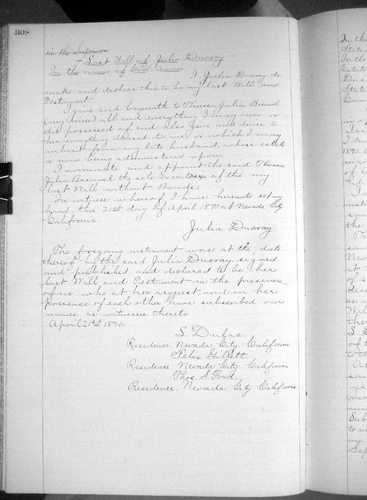 308
In the
Last Will of Julia Ducray
In the name of God Amen
I Julia Ducray do
make and declare this to be my last Will and
Testament
I give and bequeath to Theresa Julia
(my niece) all and everything I may now
die possessed of and also give and devise to
her anything devised to me or which I may
inherit from my late husband whose estate
is now being administered upon.
I nominate and appoint the said Theresa
Julia the sole Executrix of this my
last Will without Bonds.
In witness whereof I have hereunto set my
hand this 21st day of April 1890 at Nevada City
California.
Julia Ducray
The foregoing instrument was at the date
thereof by the said Julia Ducray signed
and published and declared to be her
last Will and Testament in the presence
of us who at her request and in her
presence of each other have subscribed our
names as witnesses thereto
April 21st 1890.
Residence Nevada City California
Felix Gillett
Residence Nevada City California
Thos S Ford
Residence Nevada City California